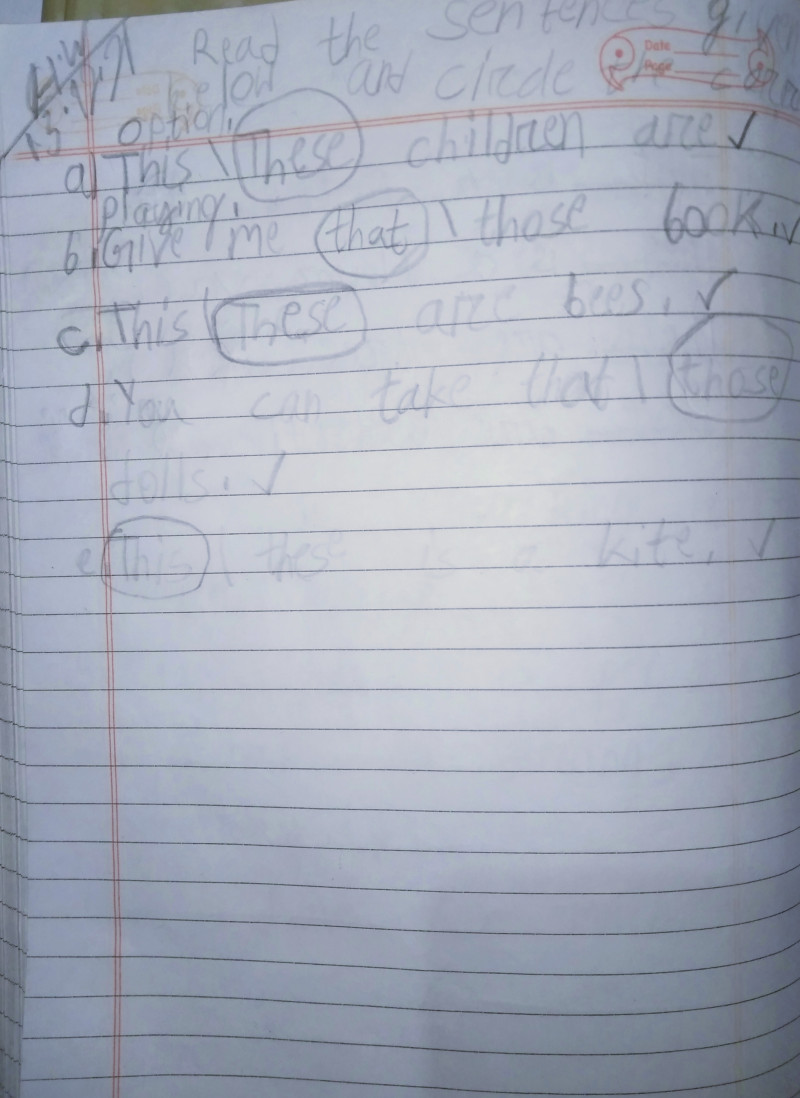 H.W Read the sentences
below and circle the
option.
a) This \ These children are ✓
playing.
b. Give me that \ those book. ✓
c. This \ These are bees. ✓
d. You can take that \ those
dolls. ✓
e. This \ these is a kite. ✓
Date
Page